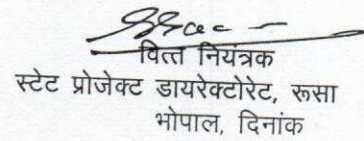 वित्त नियंत्रक
स्टेट प्रोजेक्ट डायरेक्टोरेट, रूसा
भोपाल, दिनांक